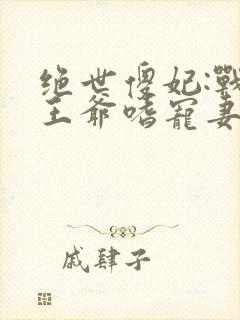 绝世傻妃:战
王爷嗜宠妻
戚肆子